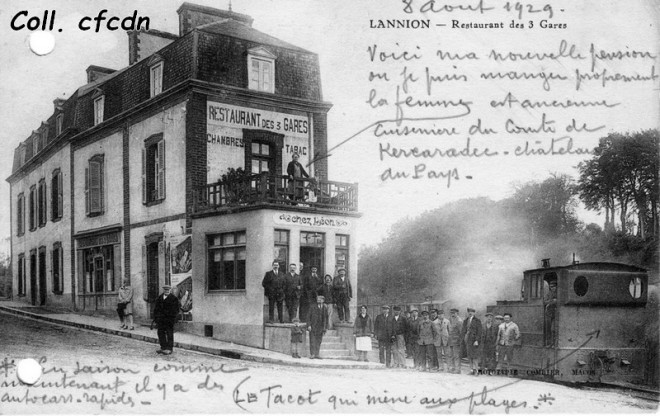 Coll. cfcdn
8 Août 1929.
LANNION — Restaurant des 3 Gares
Voici ma nouvelle pension
ou je puis manger proprement
la femme est ancienne
cuisinière du Comte de
Kercaradec - châtelain
du Pays.
RESTAURANT DES 3 GARES
CHAMBRES TABAC
chez Léon
PROTOTYPIE COMBIER, MACON
* En saison comme
maintenant il y a des
autocars - rapides -
(Le Tacot qui mène aux plages. *